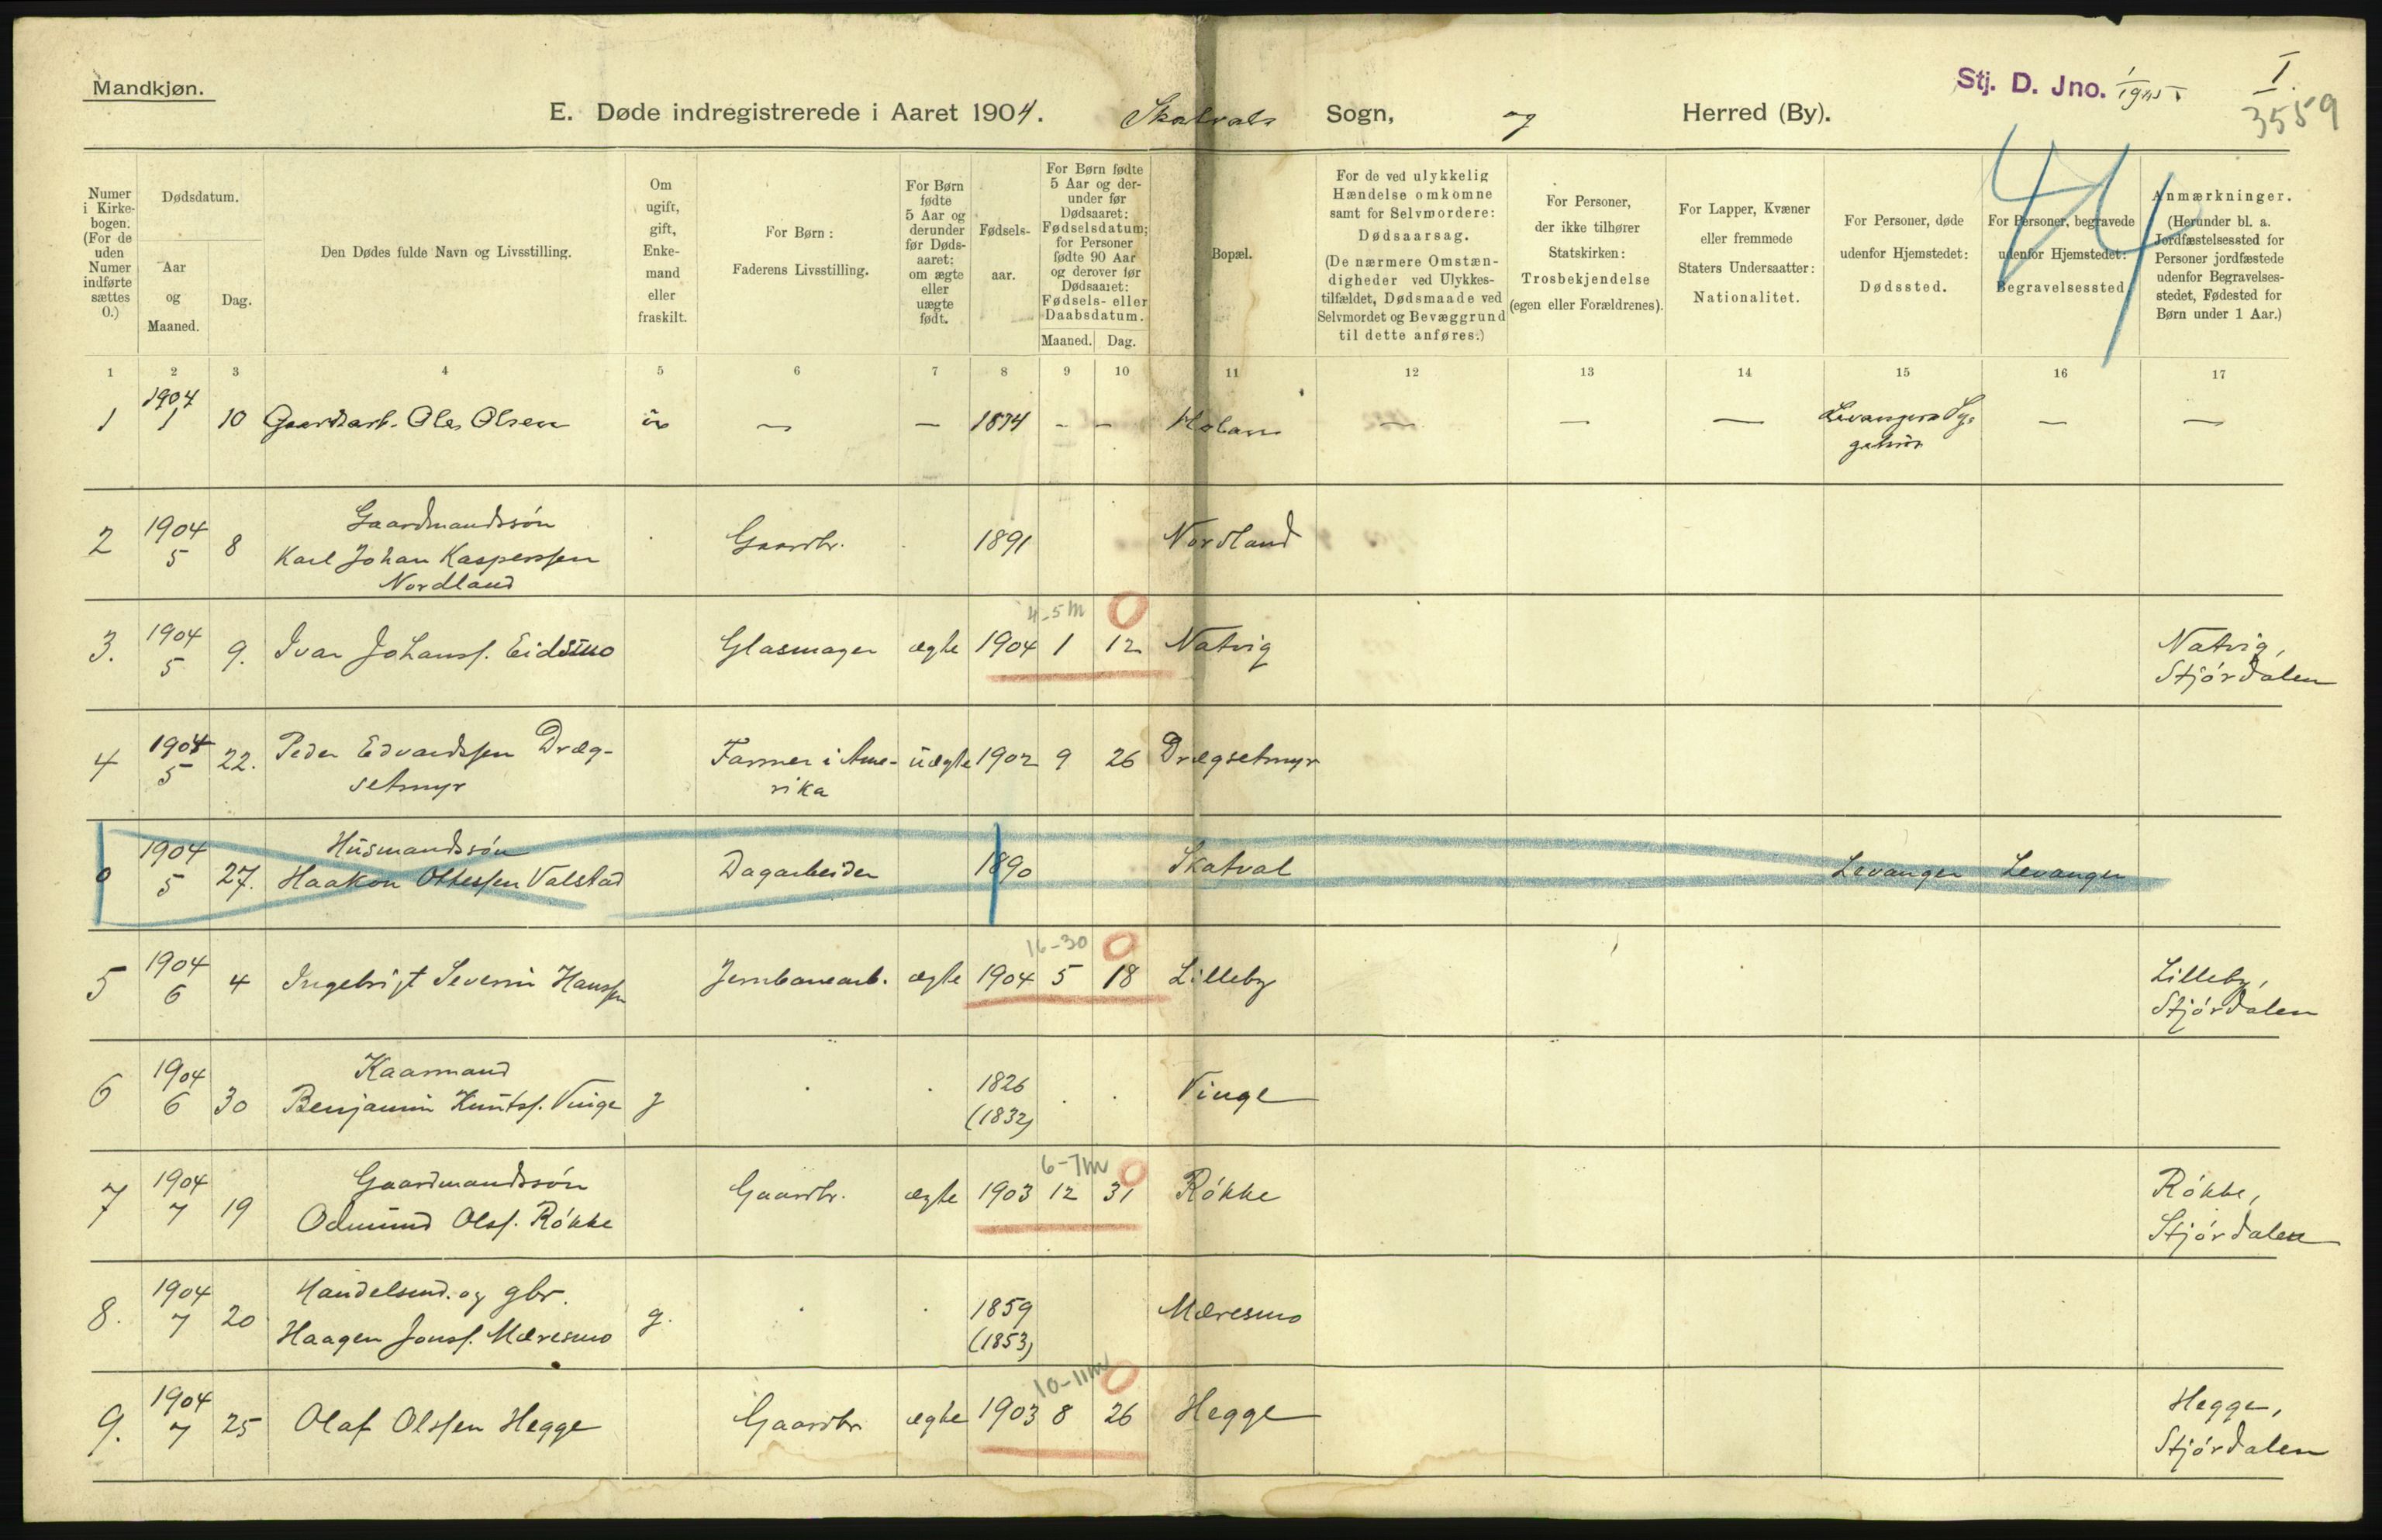 Mandkjøn.
E. Døde indregistrerede i Aaret 1904. Skatvals Sogn, og Herred (By).
Stj. D. Jno. 1/1905 I
I.
3559
44
Numer i Kirkebogen. (For de uden Numer indførte sættes 0.)
Dødsdatum.
Aar og Maaned.
Dag.
Den Dødes fulde Navn og Livsstilling.
Om ugift, gift, Enkemand eller fraskilt.
For Børn:
Faderens Livsstilling.
For Børn fødte 5 Aar og derunder før Dødsaaret: om ægte eller uægte født.
Fødselsaar.
For Børn fødte 5 Aar og derunder før Dødsaaret: Fødselsdatum; for Personer fødte 90 Aar og derover før Dødsaaret: Fødsels- eller Daabsdatum.
Maaned. Dag.
Bopæl.
For de ved ulykkelig Hændelse omkomne samt for Selvmordere: Dødsaarsag. (De nærmere Omstændigheder ved Ulykkestilfældet, Dødsmaade ved Selvmordet og Bevæggrund til dette anføres.)
For Personer, der ikke tilhører Statskirken: Trosbekjendelse (egen eller Forældrenes).
For Lapper, Kvæner eller fremmede Staters Undersaatter: Nationalitet.
For Personer, døde udenfor Hjemstedet: Dødssted.
For Personer, begravede udenfor Hjemstedet: Begravelsessted
Anmærkninger. (Herunder bl. a. Jordfæstelsessted for Personer jordfæstede udenfor Begravelsesstedet, Fødested for Børn under 1 Aar.)
1 2 3 4 5 6 7 8 9 10 11 12 13 14 15 16 17
1 1904 1 10 Gaardarb. Ole Olsen u — — 1874 - - Holan — — — Levangers Sygehus — —
2 1904 5 8 Gaardmandssøn
Karl Johan Kasperssen
Nordland Gaardbr. 1891 Nordland
4-5 m 0
3. 1904 5 9. Ivar Johanss. Eidsmo Glasmager ægte 1904 1 12 Natvig Natvig,
Stjørdalen
4 1904 5 22. Peder Edvardssen Dræg-
setmyr Farmer i Ame-
rika uægte 1902 9 26 Drægsetmyr
0 1904 5 27. Husmandssøn
Haakon Ottessen Valstad Dagarbeider 1890 Skatval Levanger Levanger
16-30 0
5 1904 6 4 Ingebrigt Severin Hanssen Jernbanearb. ægte 1904 5 18 Lilleby Lilleby,
Stjørdalen
6 1904 6 30 Kaarmand
Benjamin Knutss. Vinge g 1826
(1832) Vinge
6-7 m 0
7 1904 7 19 Gaardmandssøn
Odmund Olss. Røkke Gaardbr. ægte 1903 12 31 Røkke Røkke,
Stjørdalen
8. 1904 7 20 Handelsmd. og gbr.
Haagen Jonss. Mæresmo g. 1859
(1853) Mæresmo
10-11 m 0
9. 1904 7 25 Olaf Olssen Hegge Gaardbr ægte 1903 8 26 Hegge Hegge,
Stjørdalen